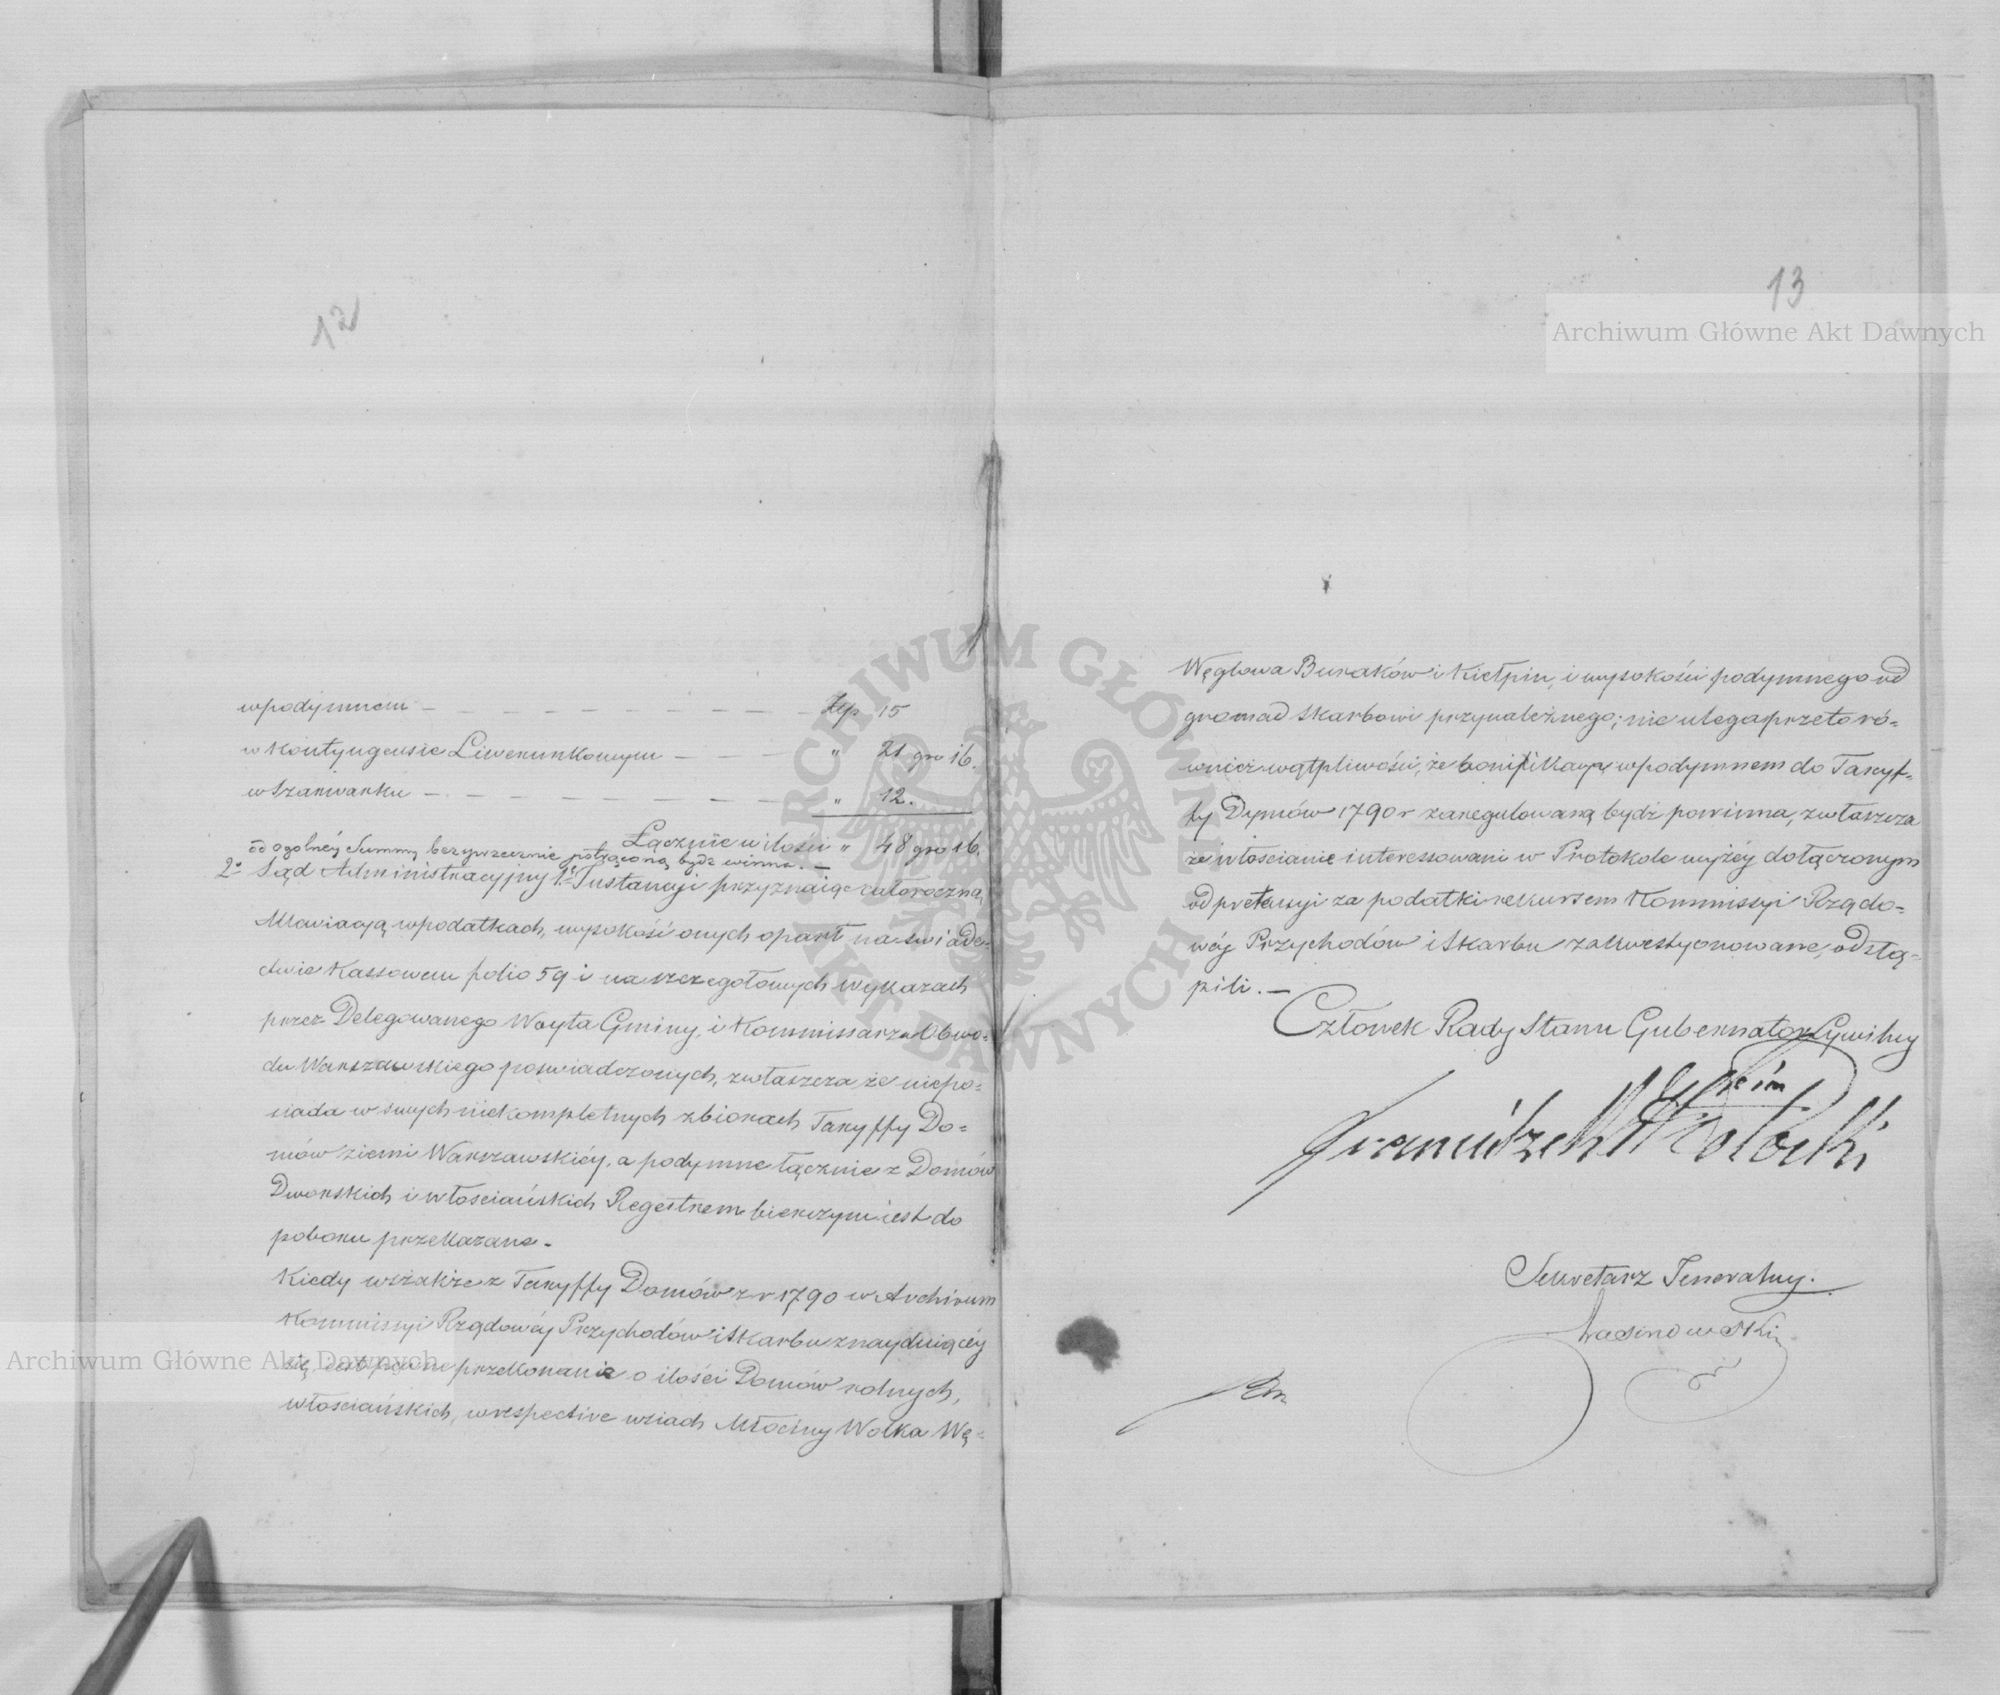 12
w podymném — Złp 15
w Kontyngensie Liwerunkowym — " 21 gro 16.
w Szarwarku — " 12.
Łącznie w ilości " 48 gro 16.
od ogólnéy Summy bezsprzecznie potrąconą bydź winna. —
2o Sąd Administracyjny 1éj Instancji przyznaiąc całoroczną
Allewiacyą w podatkach, wysokość onych oparł na świade-
ctwie Kassowem folio 59 i na szczegółowych wykazach
przez Delegowanego Woyta Gminy, i Kommissarza Obwo-
du Warszawskiego poswiadczonych, zwłaszcza że niepo-
siada w swych niekompletnych zbiorach Taryffy Do=
mów ziemi Warszawskiéy, a podymne łącznie z Domów
Dworskich i włościańskich Regestrem bierczym iest do
poboru przekazane. —
Kiedy wszakże z Taryffy Domów z r 1790 w Archiwum
Kommissyi Rządowéy Przychodów i Skarbu znayduiącéy
się, iest przekonanie o ilości Domów rolnych,
włościańskich, w respective wsiach Młociny Wolka Wę=
13
Węglowa Buraków i Kiełpin, i wysokości podymnego od
gromad Skarbowi przynależnego; nie ulega przeto ró=
wnież wątpliwości, że bonifikacya w podymnem do Taryf=
fy Dymów 1790 r zaregulowaną bydź powinna, zwłaszcza
że włościanie interessowani w Protokole wyżéy dołączonym
od pretensyi za podatki rekursem Kommissyi Rządo=
wéj Przychodów i Skarbu zakwestyonowane, odstą=
pili. —
Członek Rady Stanu Gubernator Cywilny
Sekretarz Jeneralny.
Archiwum Główne Akt Dawnych
Archiwum Główne Akt Dawnych
ARCHIWUM GŁÓWNE AKT DAWNYCH